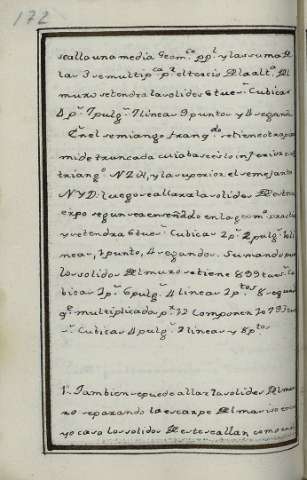 172
se alla una media Geom.ca pp.l y la suma D
las 3 se multip.ca p.r el tercio D la alt.a Dl
muro se tendra la solides 6 tues.s Cubicas
4 p.s 7 pulg.s 7 lineas 9 puntos y 4 segund
En el semiangº trang.do se tiene otra pira
mide truncada cuia base es lo inferior el
triangº NZX, y la superior el semejante
NYD. luego se allara la solides D este
cuerpo segun se a enseñado en la geom. practica
y se tendra 6 tues.s Cubicas 2 p.s 2 pulg.s 1 li
nea, 1 punto, 4 segundos. Sumando
los solidos Dl muro se tiene 899 tues.s Cu
bicas 7 p.s 6 pulg.s 4 lineas 2 p.tos 8 segun
q.e multiplicada p.r 12 componen 10793 tue
s.s Cubicas 4 pulg.s 7 lineas y 8 p.tos
1.º Tambien se puede allar la solides Dl mu
ro separando la escarpe Dl mazizo
yo caso los solidos D este se allan como